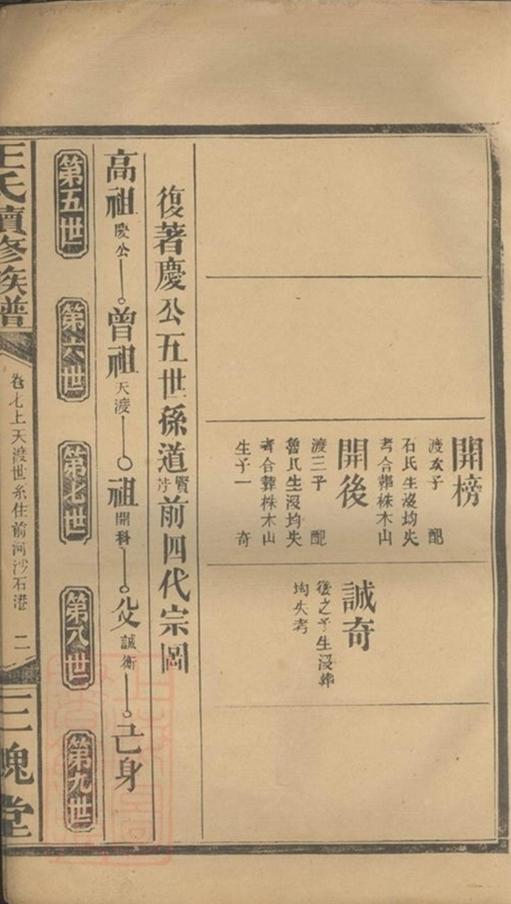 開榜
渡次子 配
石氏生沒均失
考合葬株木山
開後
渡三子 配
魯氏生沒均失
考合葬株木山
生子一 奇
誠奇
後之子生沒葬
均失考
復著慶公五世孫道賢芳前四代宗圖
高祖慶公 曾祖天渡 祖開科 父誠衛 己身
第五世 第六世 第七世 第八世 第九世
王氏續修族譜
卷七上天渡世系住前河沙石港 二
三槐堂